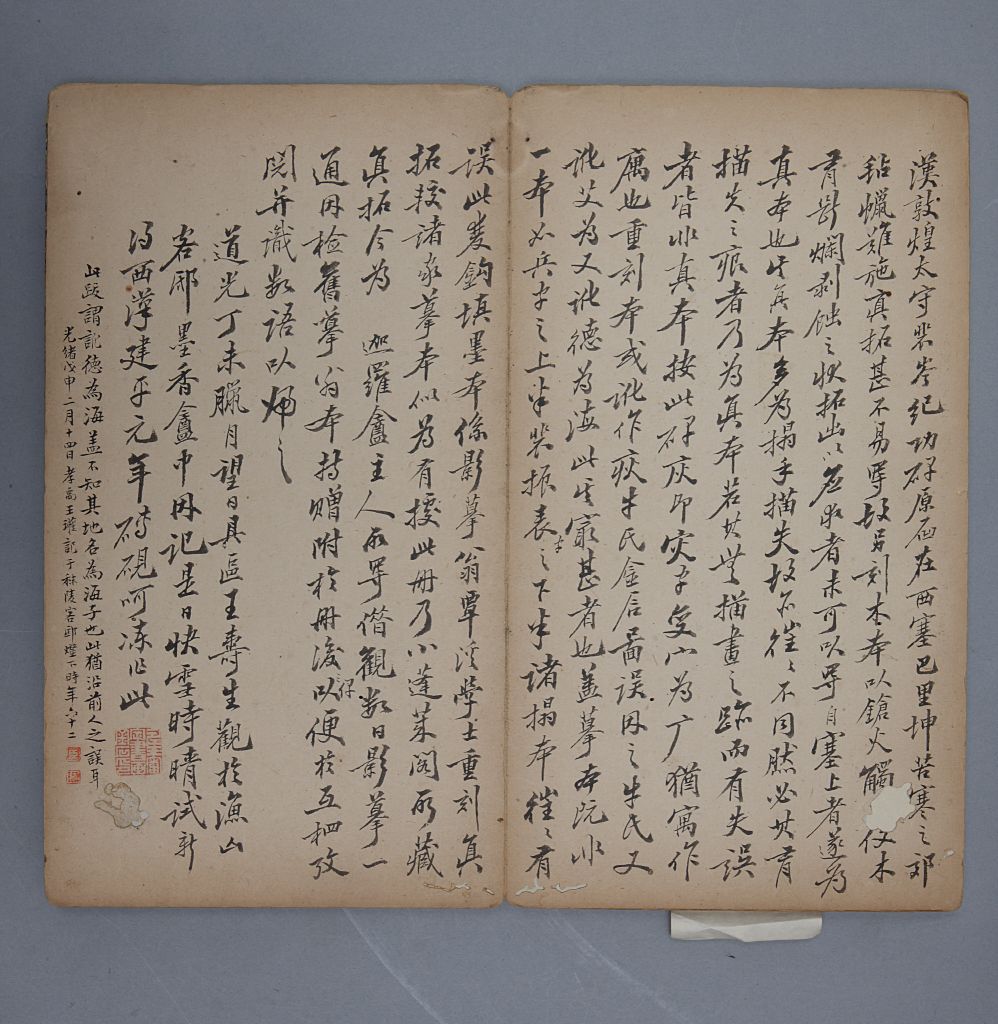 漢敦煌太守裴岑紀功碑原石在西塞巴里坤苦寒之郊
氈蠟難施真拓甚不易得故另刻木本以鎗火觸仅木
有斷爛剝蝕之狀拓出以應求者未可以得自塞上者遂為
真本也其真本多為搨手描失故亦往〻不同然必其有
描失之痕者乃為真本若其無描畫之跡而有失誤
者皆非真本按此碑灰即灾字受山為广猶寓作
廣也重刻本或訛作疢牛氏金石圖誤因之牛氏又
訛艾為又訛德為海此其最甚者也蓋摹本既非
一本如兵字之上半裴振表之下半諸搨本往〻有
誤此雙鈎填墨本係影摹翁覃溪學士重刻真
拓挍諸家摹本似為有據此冊乃小蓬萊閣所藏
真拓今為 迦羅盦主人所得借觀數日影摹一
通因檢舊摹翁本持贈附於冊後以便於互相攷
閱并識數語以歸之
道光丁未臘月望日具區王壽生觀於漁山
客邸墨香盦中因記是日快雪時晴試新
得西漢建平元年磚硯呵凍作此
此跋謂訛德為海蓋不知其地名為海子也此猶沿前人之誤耳
光緒戊申二月十四日孝禹王瓘記于秣陵客邸燈下時年六十二